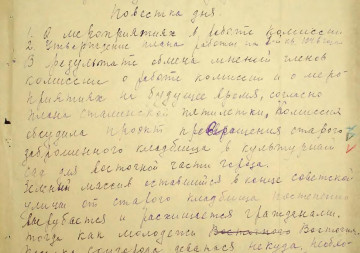 Повестка дня
1. О мероприятиях в работе комиссии
2. Утверждение плана работы на
В результате обмена мнений членов
комиссии о работе комиссии и о меро-
приятиях на будущее время, согласно
плана сталинской пятилетки, Комиссия
обсудила проект превращения старого
заброшенного кладбища в культурный
сад для восточной части города.
Зеленый массив оставшийся в конце советской
улицы от старого кладбища постепенно
вырубается и расхищается гражданами,
тогда как молодежь Восточного Восточн.
города деваться некуда,